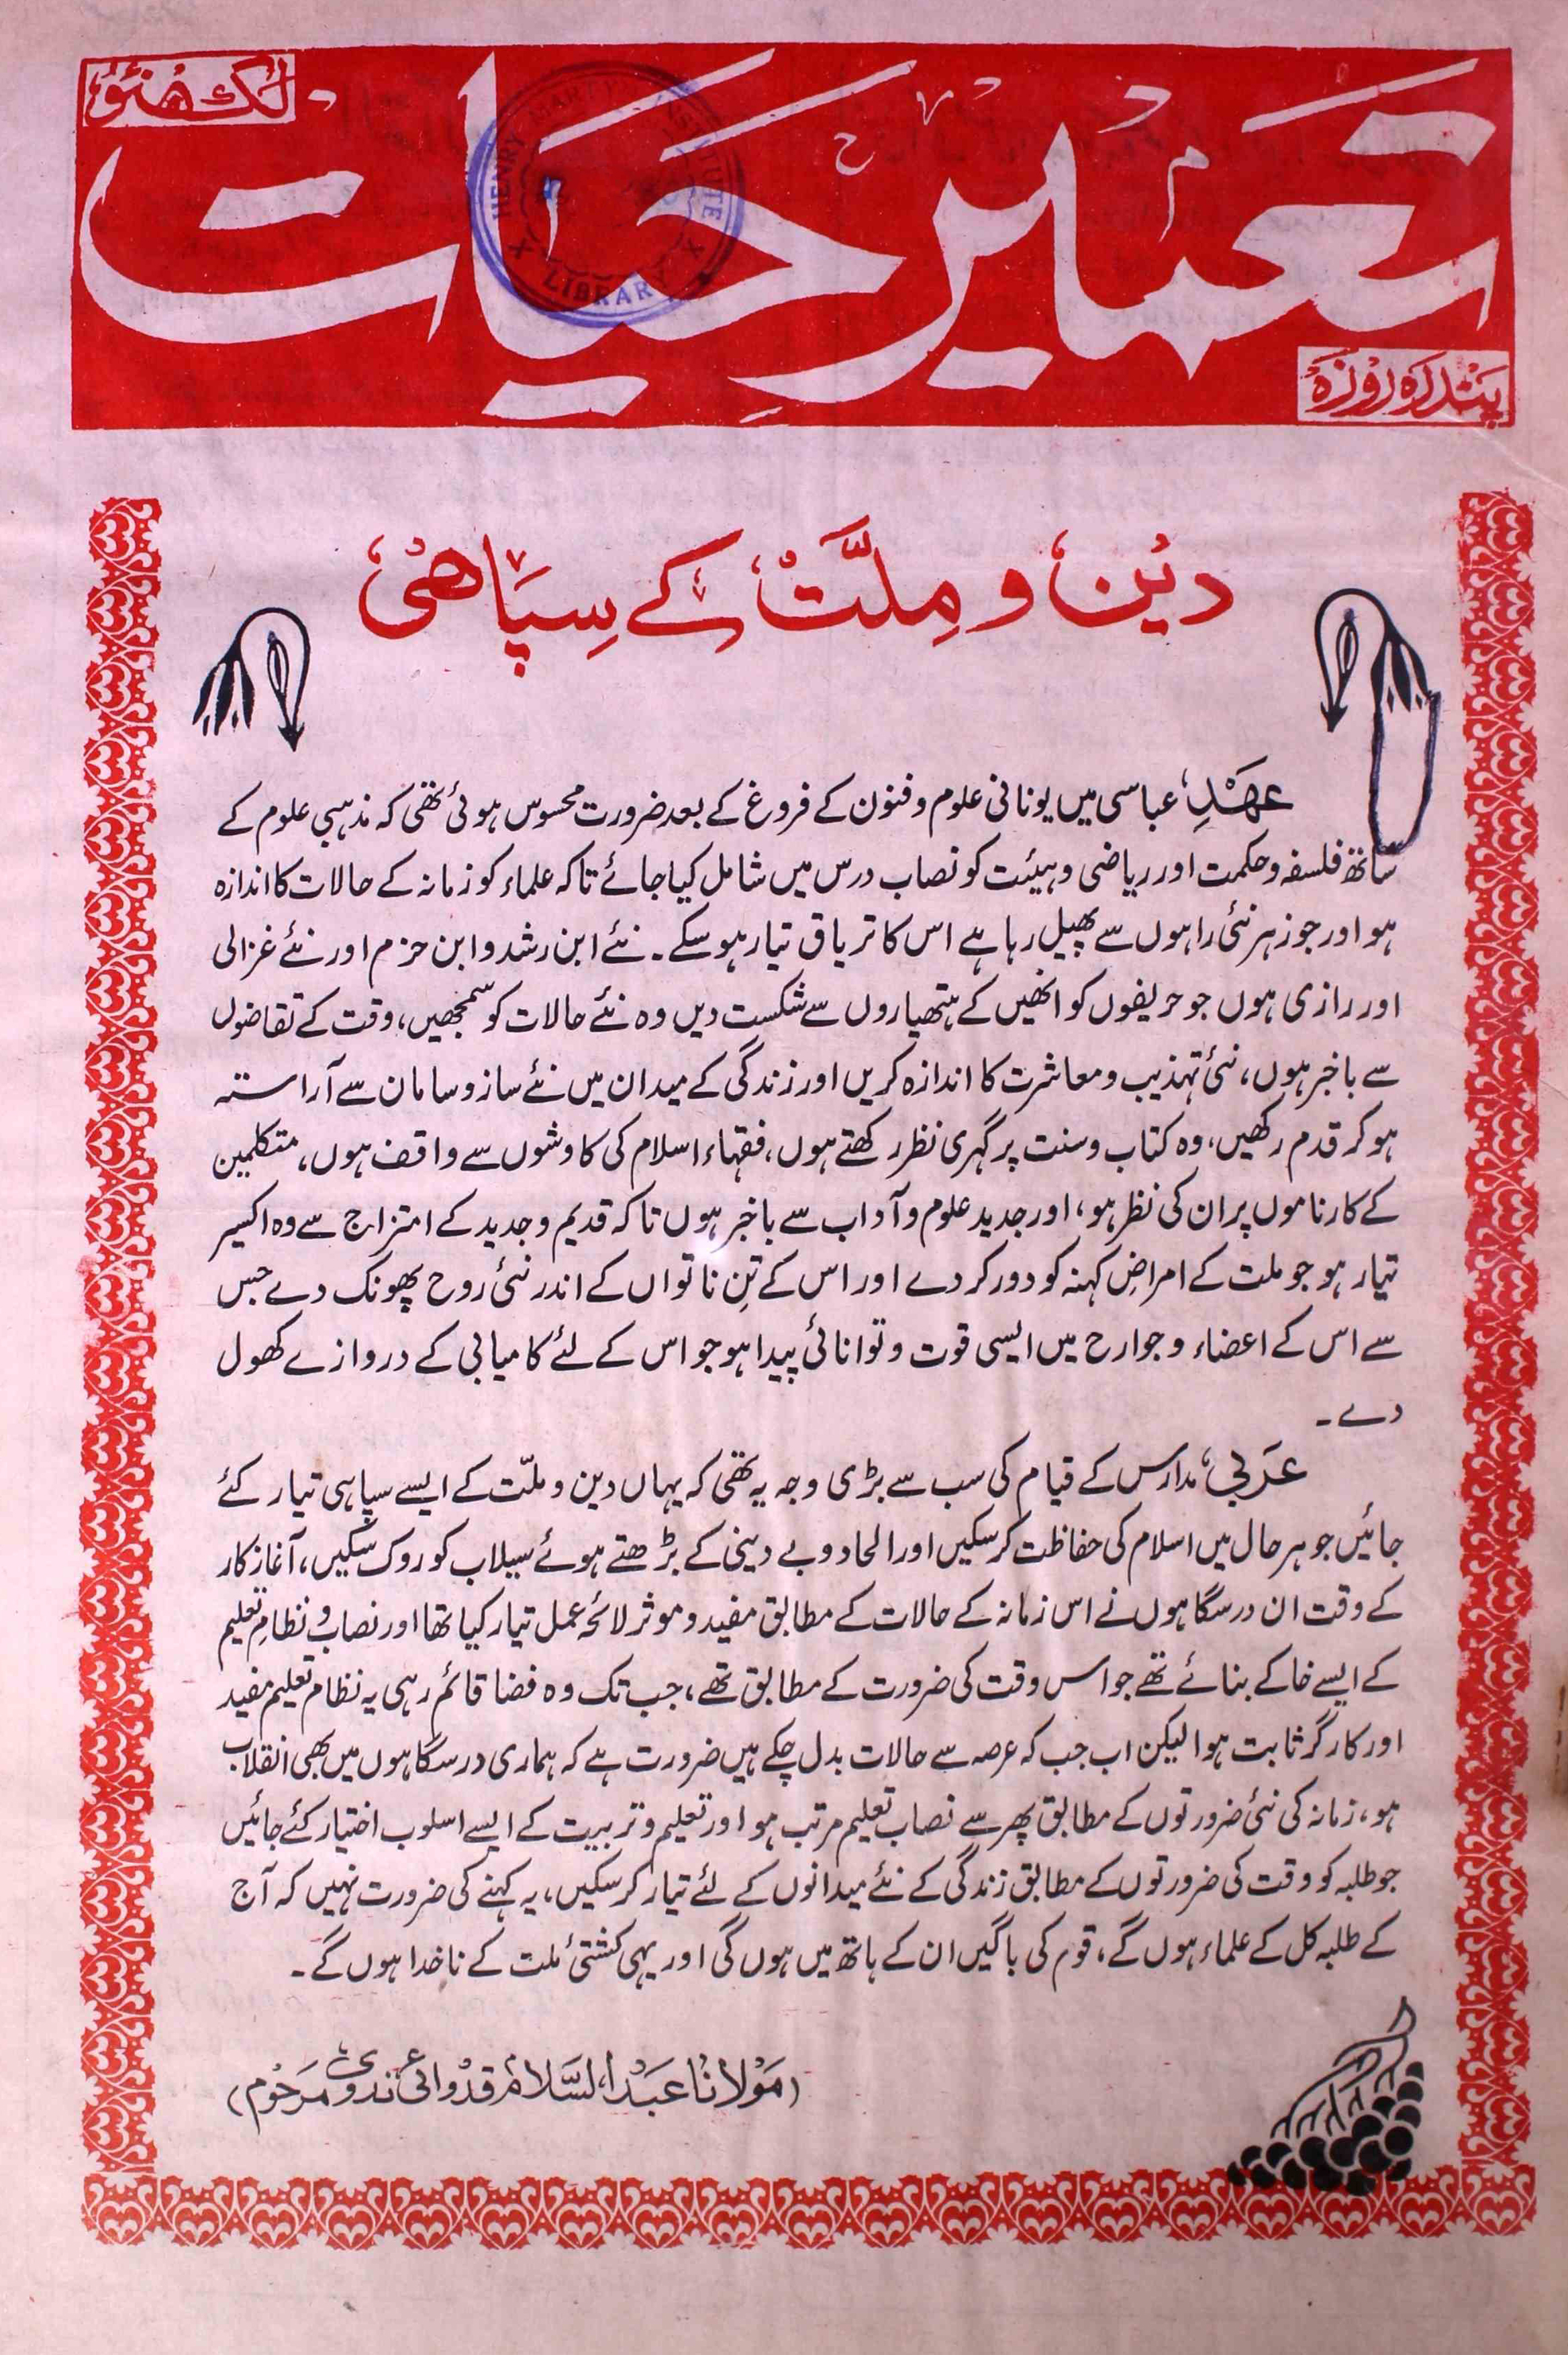 لکھنؤ
تعمیر حیات
پندرہ روزہ
HENRY MARTYN INSTITUTE
LIBRARY
دین و ملّت کے سپاھی
عھدِ عباسی میں یونانی علوم و فنون کے فروغ کے بعد ضرورت محسوس ہوئی تھی کہ مذہبی علوم کے
ساتھ فلسفہ و حکمت اور ریاضی و ہیئت کو نصاب درس میں شامل کیا جائے تاکہ علماء کو زمانہ کے حالات کا اندازہ
ہو اور جو زہر نئی راہوں سے پھیل رہا ہے اس کا تریاق تیار ہو سکے۔ نئے ابن رشد و ابن حزم اور نئے غزالی
اور رازی ہوں جو حریفوں کو انھیں کے ہتھیاروں سے شکست دیں وہ نئے حالات کو سمجھیں، وقت کے تقاضوں
سے باخبر ہوں، نئی تہذیب و معاشرت کا اندازہ کریں اور زندگی کے میدان میں نئے ساز و سامان سے آراستہ
ہو کر قدم رکھیں، وہ کتاب و سنت پر گہری نظر رکھتے ہوں، فقہاء اسلام کی کاوشوں سے واقف ہوں، متکلمین
کے کارناموں پر ان کی نظر ہو، اور جدید علوم و آداب سے باخبر ہوں تاکہ قدیم و جدید کے امتزاج سے وہ اکسیر
تیار ہو جو ملت کے امراضِ کہنہ کو دور کر دے اور اس کے تنِ ناتواں کے اندر نئی روح پھونک دے جس
سے اس کے اعضاء و جوارح میں ایسی قوت و توانائی پیدا ہو جو اس کے لئے کامیابی کے دروازے کھول
دے۔
عربی مدارس کے قیام کی سب سے بڑی وجہ یہ تھی کہ یہاں دین و ملّت کے ایسے سپاہی تیار کئے
جائیں جو ہر حال میں اسلام کی حفاظت کر سکیں اور الحاد و بے دینی کے بڑھتے ہوئے سیلاب کو روک سکیں، آغاز کار
کے وقت ان درسگاہوں نے اس زمانہ کے حالات کے مطابق مفید و موثر لائحہ عمل تیار کیا تھا اور نصاب و نظامِ تعلیم
کے ایسے خاکے بنائے تھے جو اس وقت کی ضرورت کے مطابق تھے، جب تک وہ فضا قائم رہی یہ نظام تعلیم مفید
اور کارگر ثابت ہوا لیکن اب جب کہ عرصہ سے حالات بدل چکے ہیں ضرورت ہے کہ ہماری درسگاہوں میں بھی انقلاب
ہو، زمانہ کی نئی ضرورتوں کے مطابق پھر سے نصاب تعلیم مرتب ہو اور تعلیم و تربیت کے ایسے اسلوب اختیار کئے جائیں
جو طلبہ کو وقت کی ضرورتوں کے مطابق زندگی کے نئے میدانوں کے لئے تیار کر سکیں، یہ کہنے کی ضرورت نہیں کہ آج
کے طلبہ کل کے علماء ہوں گے، قوم کی باگیں ان کے ہاتھ میں ہوں گی اور یہی کشتئ ملت کے ناخدا ہوں گے۔
(مولانا عبدالسّلام قدوائی ندوی مرحوم)